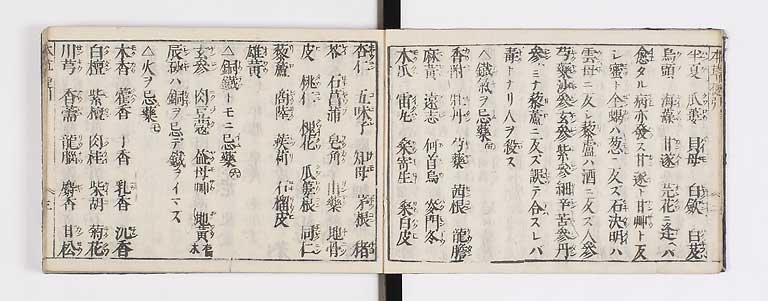 半夏 瓜蔞 貝母 白斂 白芨
烏頭 海藻 甘遂 芫花ニ逢ヘバ
愈タル病亦發ス 甘遂ト甘艸ト反
シ 蜜ト全蝎ハ葱ニ反ズ 石決明ハ
雲母ニ反シ 藜蘆ハ酒ニ反ズ 人參
芍藥 沙參 玄參 紫參 細辛 苦參 丹
參ミナ藜蘆ニ反ズ 誤テ合スレバ
毒トナリ人ヲ殺ス
△鐵ヲ忌藥
香附 牡丹 芍藥 茜根 龍膽
麻黃 遠志 何首烏 麥門冬
木瓜 雷丸 桑寄生 桑白皮
杏仁 五味子 知母 茅根 猪
苓 石菖蒲 皂角 山藥 地骨
皮 桃仁 桃花 瓜蔞根 同仁
藜蘆 商陸 石榴皮
雄黃
△銅鐵トモニ忌藥
玄參 肉豆蔲 益母艸 地黃
辰砂ハ銅ヲ忌テ鐵ヲイマス
△火ヲ忌藥
木香 藿香 丁香 乳香 沉香
白檀 紫檀 肉桂 柴胡 菊花
川芎 香薷 龍腦 麝香 甘松